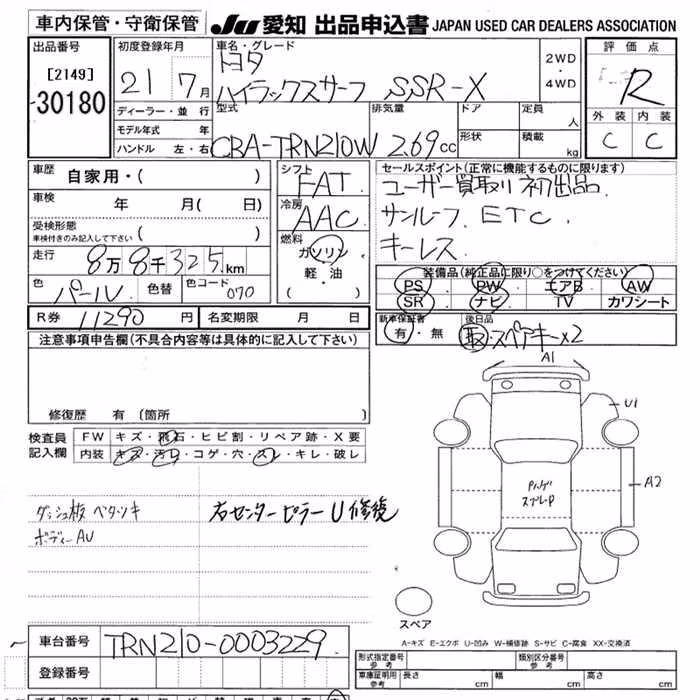 車内保管・守衛保管 JU 愛知 出品申込書 JAPAN USED CAR DEALERS ASSOCIATION
出品番号 初度登録年月 車名・グレード 評価点
[2149] 21 年 7月 トヨタ 2WD・4WD
30180 ハイラックスサーフ SSR-X R
ディーラー・並行 型式 排気量 ドア 定員 人 外装 内装
モデル年式 年 形状 積載 kg C C
ハンドル 左・右 CBA-TRN210W 2.69cc
車歴 自家用・( ) シフト FAT セールスポイント(正常に機能するものに限ります)
車検 年 月( 日) 冷房 AAC ユーザー買取り 初出品
受検形態 サンルーフ. ETC.
車検付きのみ記入して下さい ( ) 燃料 ガソリン キーレス
走行 8万8千325km 軽・油
色 パール 色替 色コード 070 ( )
装備品(純正品に限り○をつけてください)
PS PW エアB AW
SR ナビ TV カワシート
R券 11290 円 名変期限 月 日 新車保証書 有・無 後日品 取.スペアキー×2
注意事項申告欄(不具合内容等は具体的に記入して下さい)
修復歴 有 (箇所 )
検査員記入欄 FW キズ・飛石・ヒビ割・リペア跡・X要
内装 キズ・汚れ・コゲ・穴・スレ・キレ・破レ
ダッシュ板 ベタツキ 右センターピラー U 修復
ボディーAU
A1
U1
A2
スペア
A-キズ E-エクボ U-凹み W-補修跡 S-サビ C-腐食 XX-交換済
車台番号 TRN210-0003229
登録番号
形式指定番号 参考 類別区分番号 参考
車庫証明用 参考 長さ cm 幅 cm 高さ cm